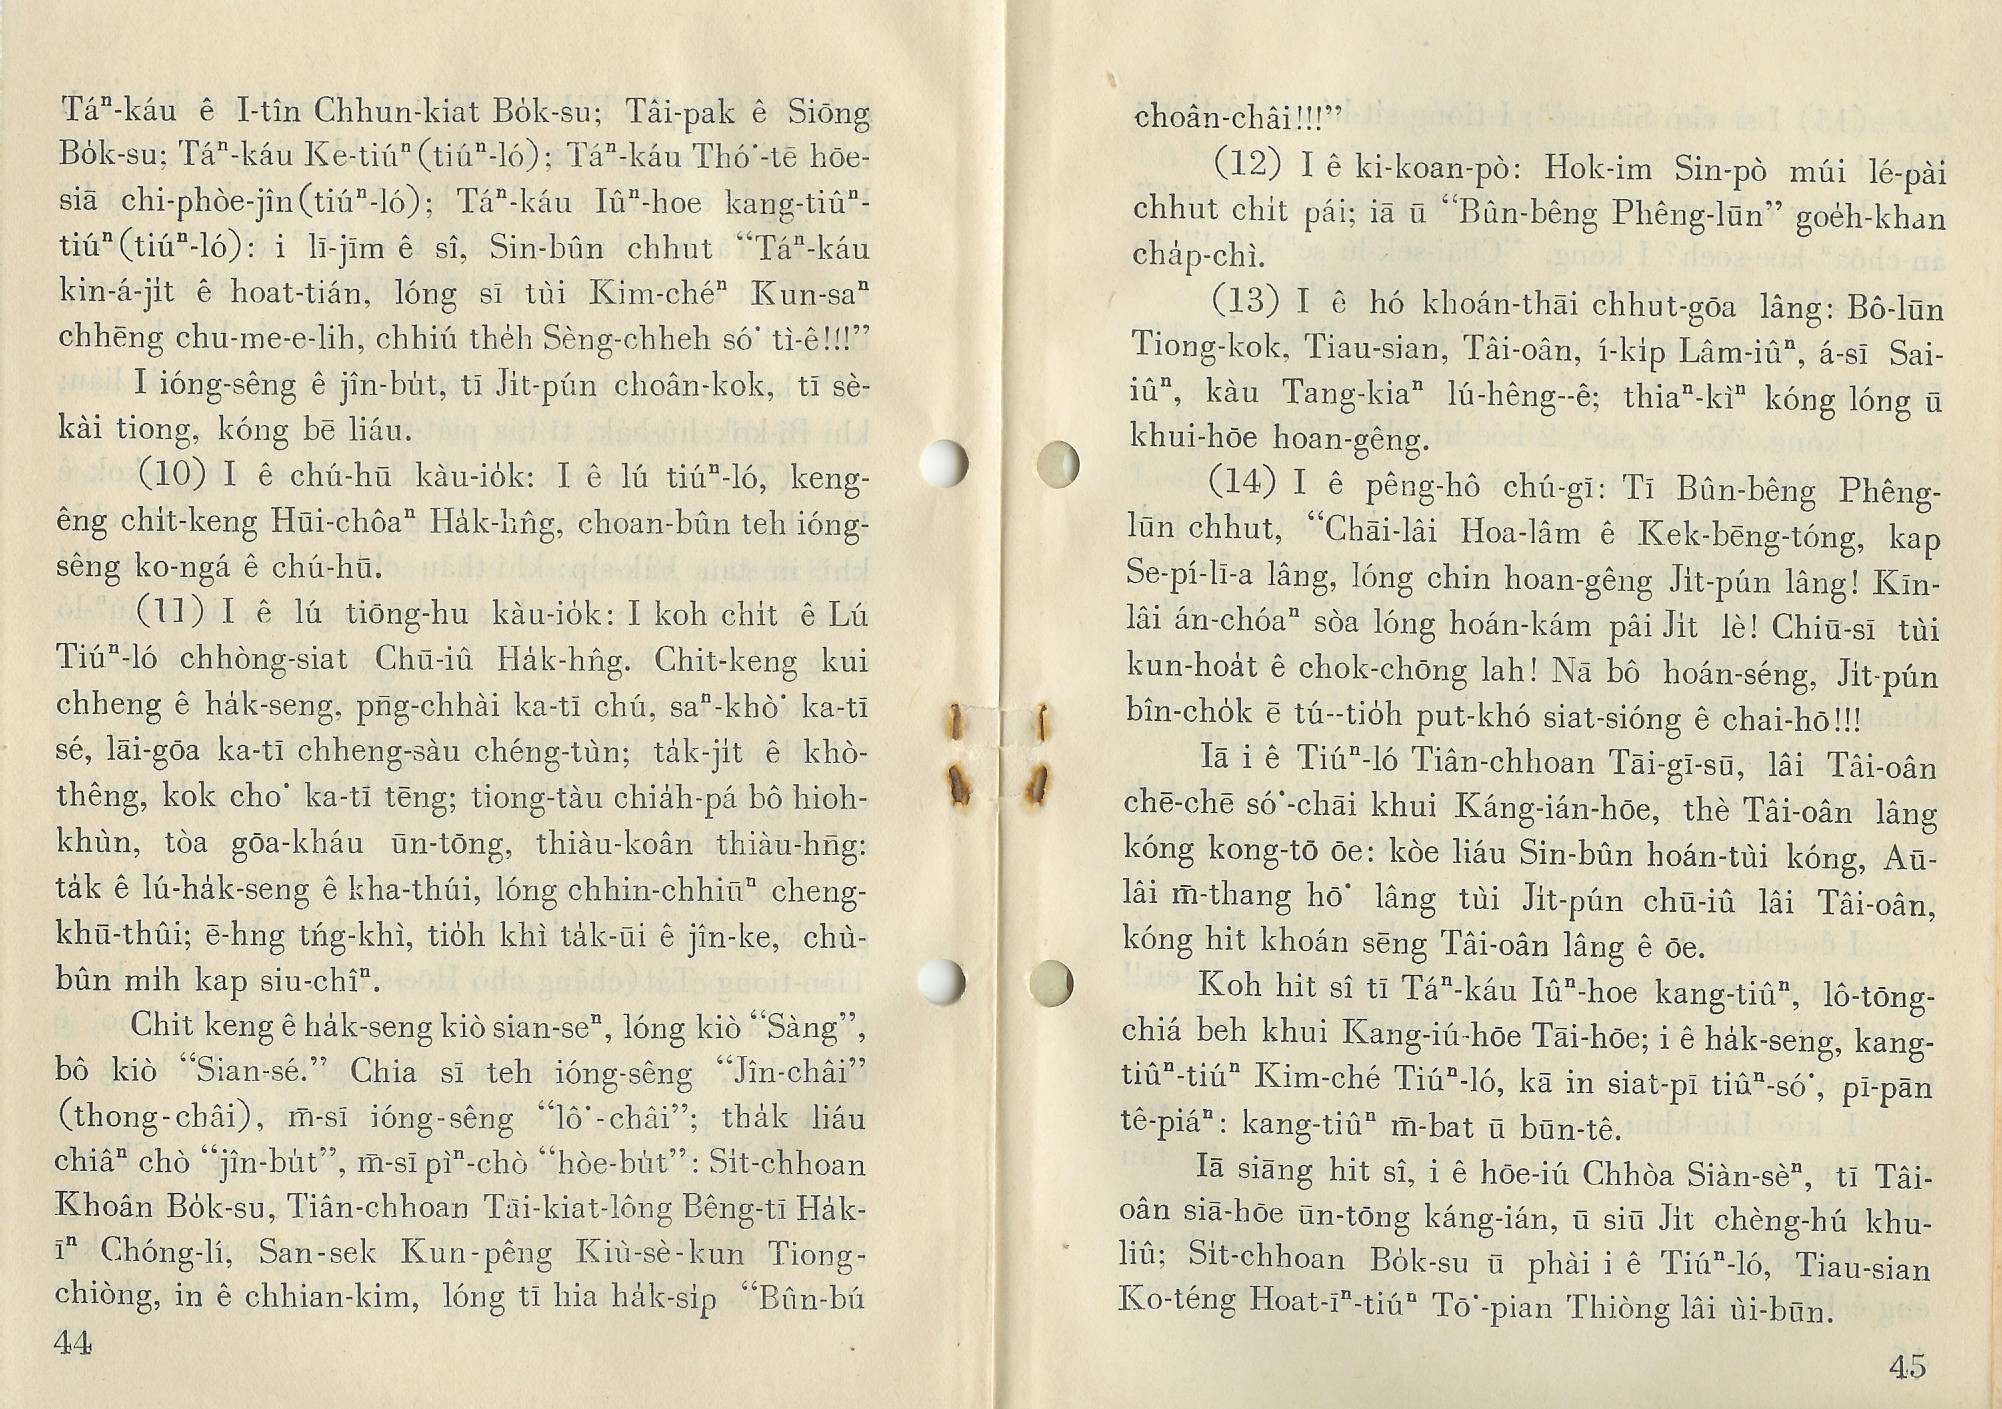 Táⁿ-káu ê I-tîn Chhun-kiat Bo̍k-su; Tâi-pak ê Siōng
Bo̍k-su; Táⁿ-káu Ke-tiúⁿ(tiúⁿ-ló); Táⁿ-káu Thó͘-tē hōe-
siā chi-phòe-jîn(tiúⁿ-ló); Táⁿ-káu Iûⁿ-hoe kang-tiûⁿ-
tiúⁿ(tiúⁿ-ló): i lī-jīm ê sî, Sin-bûn chhut “Táⁿ-káu
kin-á-ji̍t ê hoat-tián, lóng sī tùi Kim-chéⁿ Kun-saⁿ
chhēng chu-me-e-lih, chhiú the̍h Sèng-chheh só͘ tì-ê!!!”
I ióng-sêng ê jîn-bu̍t, tī Ji̍t-pún choân-kok, tī sè-
kài tiong, kóng bē liáu.
(10) I ê chú-hū kàu-io̍k: I ê lú tiúⁿ-ló, keng-
êng chi̍t-keng Hūi-chôaⁿ Ha̍k-hn̂g, choan-bûn teh ióng-
sêng ko-ngá ê chú-hū.
(11) I ê lú tiōng-hu kàu-io̍k: I koh chi̍t ê Lú
Tiúⁿ-ló chhòng-siat Chū-iû Ha̍k-hn̂g. Chit-keng kui
chheng ê ha̍k-seng, pn̄g-chhài ka-tī chú, saⁿ-khò͘ ka-tī
sé, lāi-gōa ka-tī chheng-sàu chéng-tùn; ta̍k-ji̍t ê khò-
thêng, kok cho͘ ka-tī tēng; tiong-tàu chia̍h-pá bô hioh-
khùn, tòa gōa-kháu ūn-tōng, thiàu-koân thiàu-hn̄g:
ta̍k ê lú-ha̍k-seng ê kha-thúi, lóng chhin-chhiūⁿ cheng-
khū-thûi; ē-hng tńg-khì, tio̍h khì ta̍k-ūi ê jîn-ke, chù-
bûn mi̍h kap siu-chîⁿ.
Chit keng ê ha̍k-seng kiò sian-seⁿ, lóng kiò “Sàng”,
bô kiò “Sian-sé.” Chia sī teh ióng-sêng “Jîn-châi”
(thong-châi), m̄-sī ióng-sêng “lô͘-châi”; tha̍k liáu
chiâⁿ chò “jîn-bu̍t”, m̄-sī pìⁿ-chò “hòe-bu̍t”: Si̍t-chhoan
Khoân Bo̍k-su, Tiân-chhoan Tāi-kiat-lông Bêng-tī Ha̍k-
īⁿ Chóng-lí, San-sek Kun-pêng Kiù-sè-kun Tiong-
chiòng, in ê chhian-kim, lóng tī hia ha̍k-si̍p “Bûn-bú
44
choân-châi!!!”
(12) I ê ki-koan-pò: Hok-im Sin-pò múi lé-pài
chhut chi̍t pái; iā ū “Bûn-bêng Phêng-lūn” goe̍h-khan
cha̍p-chì.
(13) I ê hó khoán-thāi chhut-gōa lâng: Bô-lūn
Tiong-kok, Tiau-sian, Tâi-oân, í-ki̍p Lâm-iûⁿ, á-sī Sai-
iûⁿ, kàu Tang-kiaⁿ lú-hêng--ê; thiaⁿ-kìⁿ kóng lóng ū
khui-hōe hoan-gêng.
(14) I ê pêng-hô chú-gī: Tī Bûn-bêng Phêng-
lūn chhut, “Chāi-lâi Hoa-lâm ê Kek-bēng-tóng, kap
Se-pí-lī-a lâng, lóng chin hoan-gêng Ji̍t-pún lâng! Kīn-
lâi án-chóaⁿ sòa lóng hoán-kám pâi Ji̍t lè! Chiū-sī tùi
kun-hoa̍t ê chok-chōng lah! Nā bô hoán-séng, Ji̍t-pún
bîn-cho̍k ē tú--tio̍h put-khó siat-sióng ê chai-hō!!!
Iā i ê Tiúⁿ-ló Tiân-chhoan Tāi-gī-sū, lâi Tâi-oân
chē-chē só͘-chāi khui Káng-ián-hōe, thè Tâi-oân lâng
kóng kong-tō ōe: kòe liáu Sin-bûn hoán-tùi kóng, Aū-
lâi m̄-thang hō͘ lâng tùi Ji̍t-pún chū-iû lâi Tâi-oân,
kóng hit khoán sēng Tâi-oân lâng ê ōe.
Koh hit sî tī Táⁿ-káu Iûⁿ-hoe kang-tiûⁿ, lô-tōng-
chiá beh khui Kang-iú-hōe Tāi-hōe; i ê ha̍k-seng, kang-
tiûⁿ-tiúⁿ Kim-ché Tiúⁿ-ló, kā in siat-pī tiûⁿ-só͘, pī-pān
tê-piáⁿ: kang-tiûⁿ m̄-bat ū būn-tê.
Iā siāng hit sî, i ê hōe-iú Chhòa Siàn-sèⁿ, tī Tâi-
oân siā-hōe ūn-tōng káng-ián, ū siū Ji̍t chèng-hú khu-
liû; Si̍t-chhoan Bo̍k-su ū phài i ê Tiúⁿ-ló, Tiau-sian
Ko-téng Hoat-īⁿ-tiúⁿ Tō͘-pian Thiòng lâi ùi-būn.
45